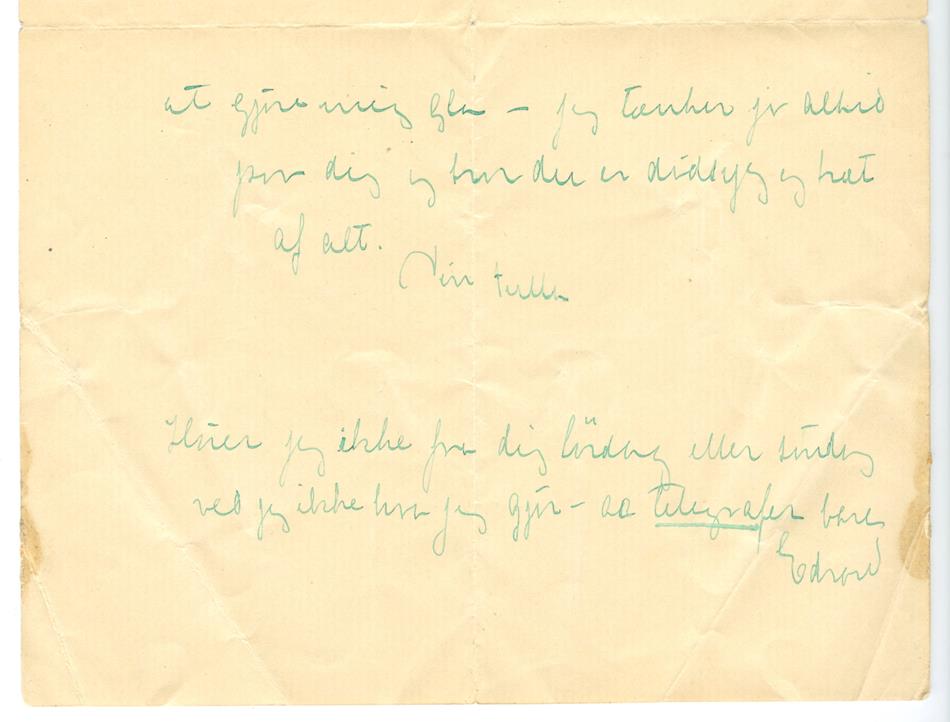 at gjøre mig gla – jeg tænker jo altid
paa dig og hvor du er dødssyg og træt
af alt.
Din Tulla
Hører jeg ikke fra dig lördag eller söndag
ved jeg ikke hva jeg gjør – aa telegrafer bare